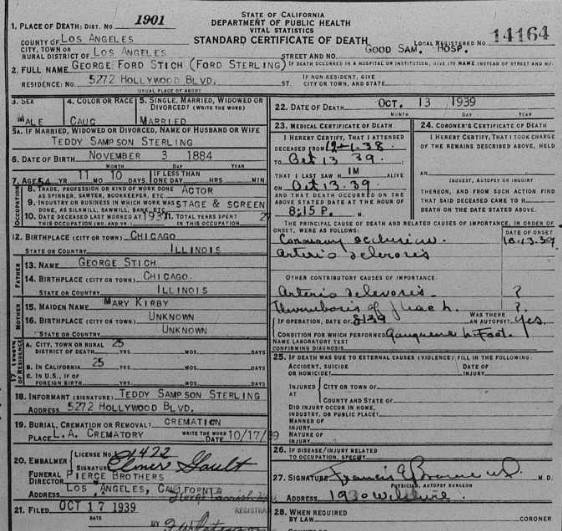 STATE OF CALIFORNIA
DEPARTMENT OF PUBLIC HEALTH
VITAL STATISTICS
STANDARD CERTIFICATE OF DEATH
1. PLACE OF DEATH: DIST. NO. 1901
LOCAL REGISTERED NO. 14164
COUNTY OF LOS ANGELES
CITY, TOWN OR RURAL DISTRICT OF LOS ANGELES STREET AND NO. GOOD SAM. HOSP.
2. FULL NAME GEORGE FORD STICH (FORD STERLING) IF DEATH OCCURRED IN A HOSPITAL OR INSTITUTION, GIVE ITS NAME INSTEAD OF STREET AND NO.
RESIDENCE: NO. 5272 HOLLYWOOD BLVD. ST. IF NON-RESIDENT, GIVE CITY OR TOWN, AND STATE
USUAL PLACE OF ABODE
3. SEX 4. COLOR OR RACE 5. SINGLE, MARRIED, WIDOWED OR DIVORCED? (WRITE THE WORD)
MALE CAUC MARRIED
5A. IF MARRIED, WIDOWED OR DIVORCED, NAME OF HUSBAND OR WIFE
TEDDY SAMPSON STERLING
6. DATE OF BIRTH NOVEMBER 3 1884
MONTH
7. AGE 54 YRS 11 MOS 10 DAYS IF LESS THAN ONE DAY HRS MIN
OCCUPATION
8. TRADE, PROFESSION OR KIND OF WORK DONE AS SPINNER, SAWYER, BOOKKEEPER, ETC. ACTOR
9. INDUSTRY OR BUSINESS IN WHICH WORK WAS DONE, AS SILKMILL, SAWMILL, BANK, ETC. STAGE & SCREEN
10. DATE DECEASED LAST WORKED AT THIS OCCUPATION 11. TOTAL YEARS SPENT IN THIS OCCUPATION
12. BIRTHPLACE (CITY OR TOWN) CHICAGO
STATE OR COUNTRY ILLINOIS
FATHER
13. NAME GEORGE STICH
14. BIRTHPLACE (CITY OR TOWN) CHICAGO
STATE OR COUNTRY ILLINOIS
MOTHER
15. MAIDEN NAME MARY KIRBY
16. BIRTHPLACE (CITY OR TOWN) UNKNOWN
STATE OR COUNTRY UNKNOWN
A. CITY, TOWN OR RURAL DISTRICT OF DEATH 25 YRS MOS DAYS
B. IN CALIFORNIA 25 YRS MOS DAYS
C. IN U.S., IF OF FOREIGN BIRTH YRS MOS DAYS
18. INFORMANT (SIGNATURE) TEDDY SAMPSON STERLING
ADDRESS 5272 HOLLYWOOD BLVD.
19. BURIAL, CREMATION OR REMOVAL? CREMATION
WRITE THE WORD
PLACE L.A. CREMATORY DATE 10/17/39
20. EMBALMER LICENSE NO. 1422
SIGNATURE Elmer Gault
FUNERAL DIRECTOR PIERCE BROTHERS
ADDRESS LOS ANGELES, CALIFORNIA
21. FILED OCT 17 1939
BY
22. DATE OF DEATH OCT. 13 1939
23. MEDICAL CERTIFICATE OF DEATH
I HEREBY CERTIFY, THAT I ATTENDED DECEASED FROM
TO Oct 13 39.
THAT I LAST SAW H IM
ON Oct 13. 39
AND THAT DEATH OCCURRED ON THE ABOVE STATED DATE AT THE HOUR OF
8:15 P. M.
24. CORONER'S CERTIFICATE OF DEATH
I HEREBY CERTIFY, THAT I TOOK CHARGE OF THE REMAINS DESCRIBED ABOVE, HELD AN
INQUEST, AUTOPSY OR INQUIRY
THEREON, AND FROM SUCH ACTION FIND THAT SAID DECEASED CAME TO H DEATH ON THE DATE STATED ABOVE.
THE PRINCIPAL CAUSE OF DEATH AND RELATED CAUSES OF IMPORTANCE, IN ORDER OF ONSET, WERE AS FOLLOWS: DATE OF ONSET
Coronary occlusion 10.13.39
Arterio sclerosis
OTHER CONTRIBUTORY CAUSES OF IMPORTANCE:
Arterio sclerosis. ?
Thrombosis of ?
IF OPERATION, DATE OF WAS THERE AN AUTOPSY? Yes.
CONDITION FOR WHICH PERFORMED Gangrene L. Foot.
NAME LABORATORY TEST CONFIRMING DIAGNOSIS
25. IF DEATH WAS DUE TO EXTERNAL CAUSES (VIOLENCE) FILL IN THE FOLLOWING:
ACCIDENT, SUICIDE OR HOMICIDE? DATE OF INJURY
INJURED AT CITY OR TOWN OF
COUNTY AND STATE OF
DID INJURY OCCUR IN HOME, INDUSTRY, OR PUBLIC PLACE?
MANNER OF INJURY
NATURE OF INJURY
26. IF DISEASE/INJURY RELATED TO OCCUPATION, SPECIFY
27. SIGNATURE Francis M.D.
PHYSICIAN, AUTOPSY SURGEON
ADDRESS 1930 Wilshire
28. WHEN REQUIRED BY LAW CORONER COUNTY